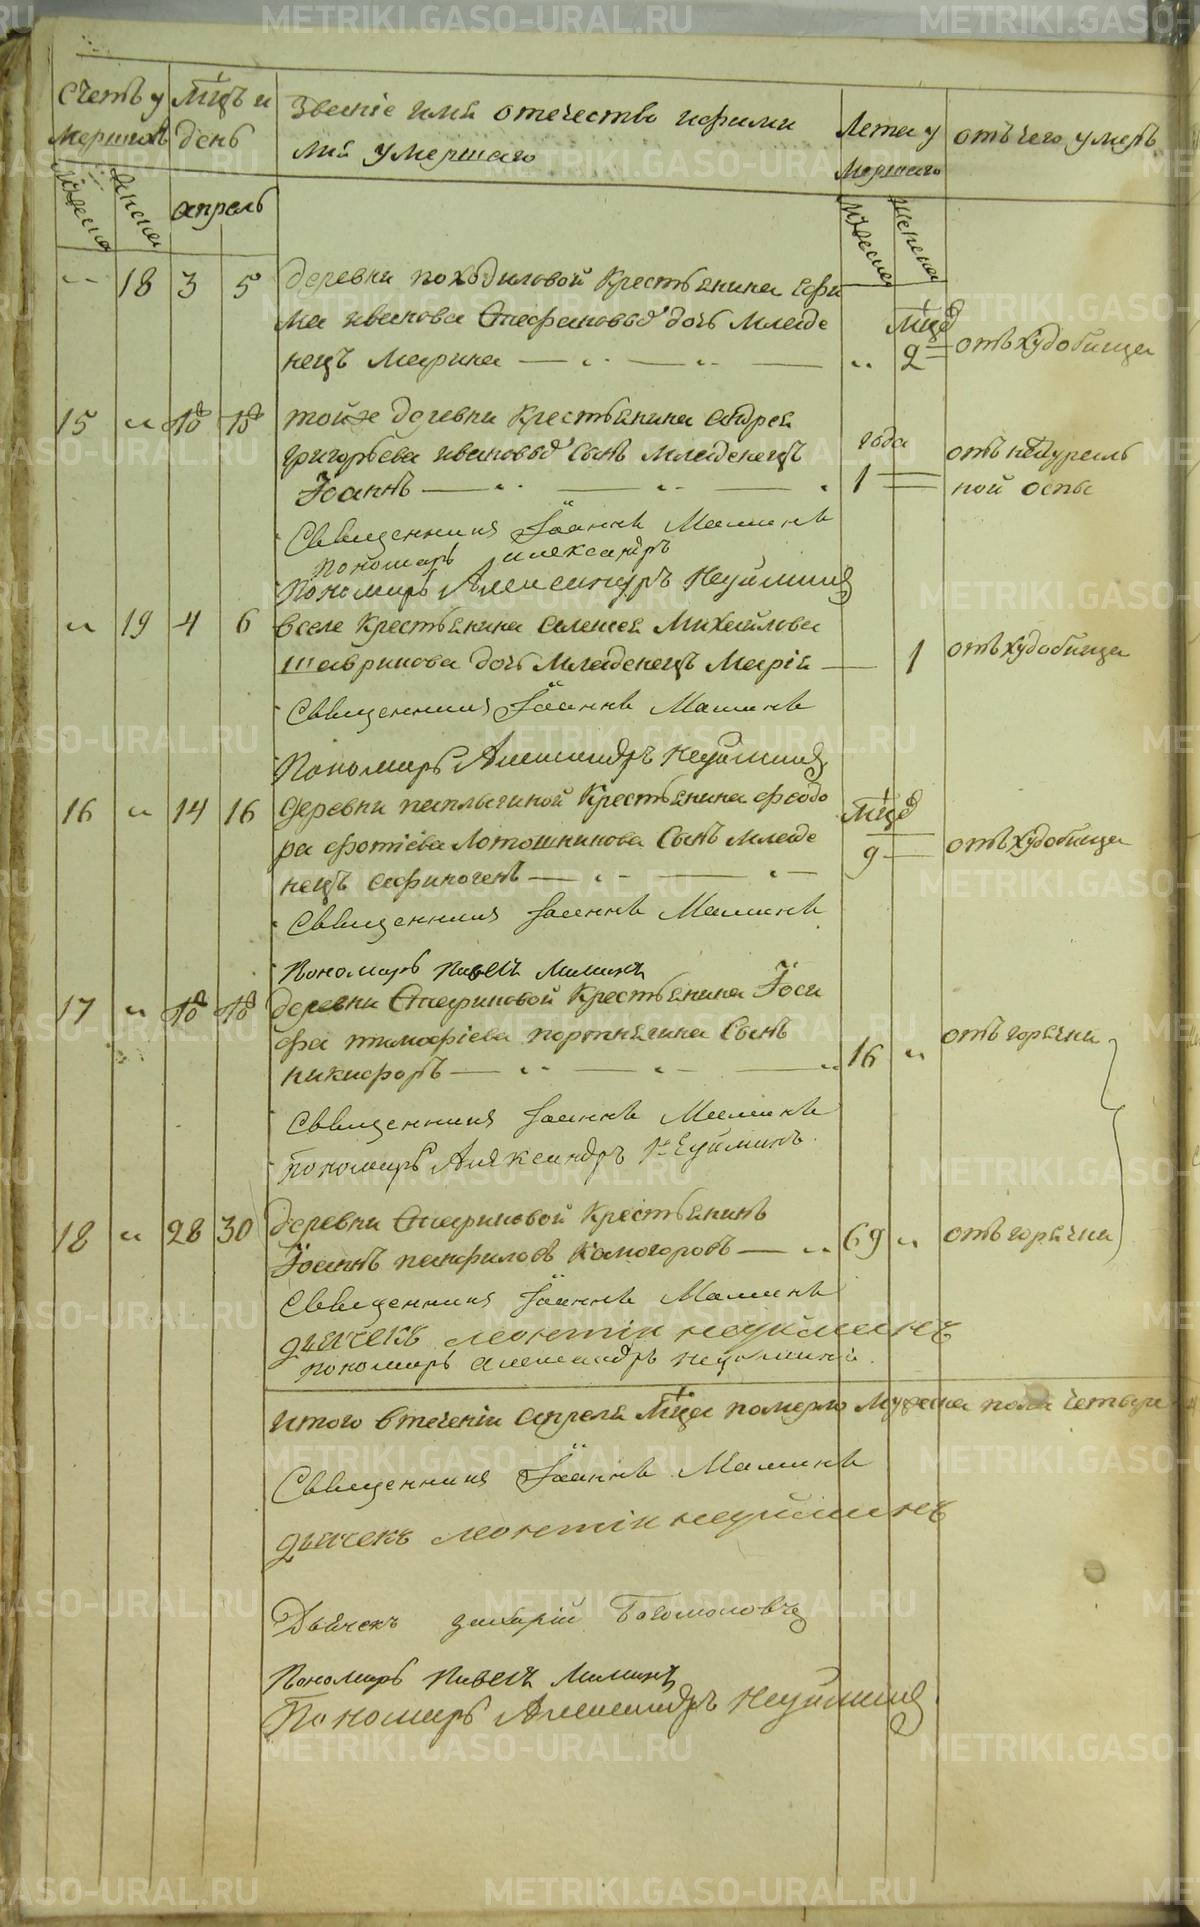 METRIKI.GASO-URAL.RU
Счетъ у Мѣцъ и Званіе имя отечество ифами Лета у отъчего умеръ
мершихъ день лия умершаго мершаго
Мужеска Женска апрель Мужеска женска
" 18 3 5 деревни походиловой Крестьянина Ефи
ма иванова Стафановыхъ дочь Младе Мѣцъ
нецъ Марина " 2 отъ худобища
15 " 10 10 тойже деревни Крестьянина андрея
григорьева ивановыхъ Сынъ младенецъ года отъ натураль
Іоаннъ 1 ной оспы
Священникъ Іоаннъ Маминъ
пономарь александръ
Пономарь Александръ Неуйминъ
" 19 4 6 вселе Крестьянина алексея Михайлова
шавринова дочь Младенецъ Марія 1 отъ худобища
Священникъ Іоаннъ Маминъ
Пономарь Александръ Неуйминъ
16 " 14 16 деревни паплыгиной Крестьянина феодо Мѣцъ
ра фотіева Лотошникова Сынъ младе 9 отъ худобища
нецъ афиногенъ
Священникъ Іоаннъ Маминъ
Пономарь Павелъ Маминъ
17 " 18 18 деревни Стафиновой Крестьянина Іоси
фа тимофіева портнягина Сынъ 16 " отъ горячки
никифоръ
Священникъ Іоаннъ Маминъ
пономарь Александръ Неуйминъ.
18 " 28 30 деревни Стафиновой Крестьянинъ
Іоаннъ панфиловъ Комогоровъ 69 " отъ горячки
Священникъ Іоаннъ Маминъ
дьячекъ леонтіи неуйминъ
пономарь александръ неуйминъ.
итого втеченіи апреля Мѣца померло Мужеска пола четыре
Священникъ Іоаннъ Маминъ
дьячекъ леонтіи неуйминъ
Дьячекъ захарій Богомоловъ
Пономарь Павелъ Маминъ
Пономарь Александръ Неуйминъ.